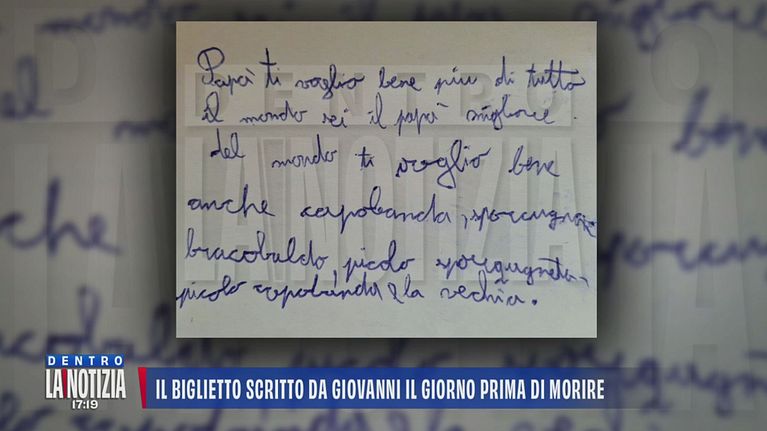 Papà ti voglio bene piu di tutto
il mondo sei il papà migliore.
del mondo ti voglio bene
anche capobanda, sporcugna
bracobaldo, picolo sporcugneta,
picolo capobanda e la vechia.
DENTRO
LA NOTIZIA
DENTRO
LA NOTIZIA
17:19
IL BIGLIETTO SCRITTO DA GIOVANNI IL GIORNO PRIMA DI MORIRE